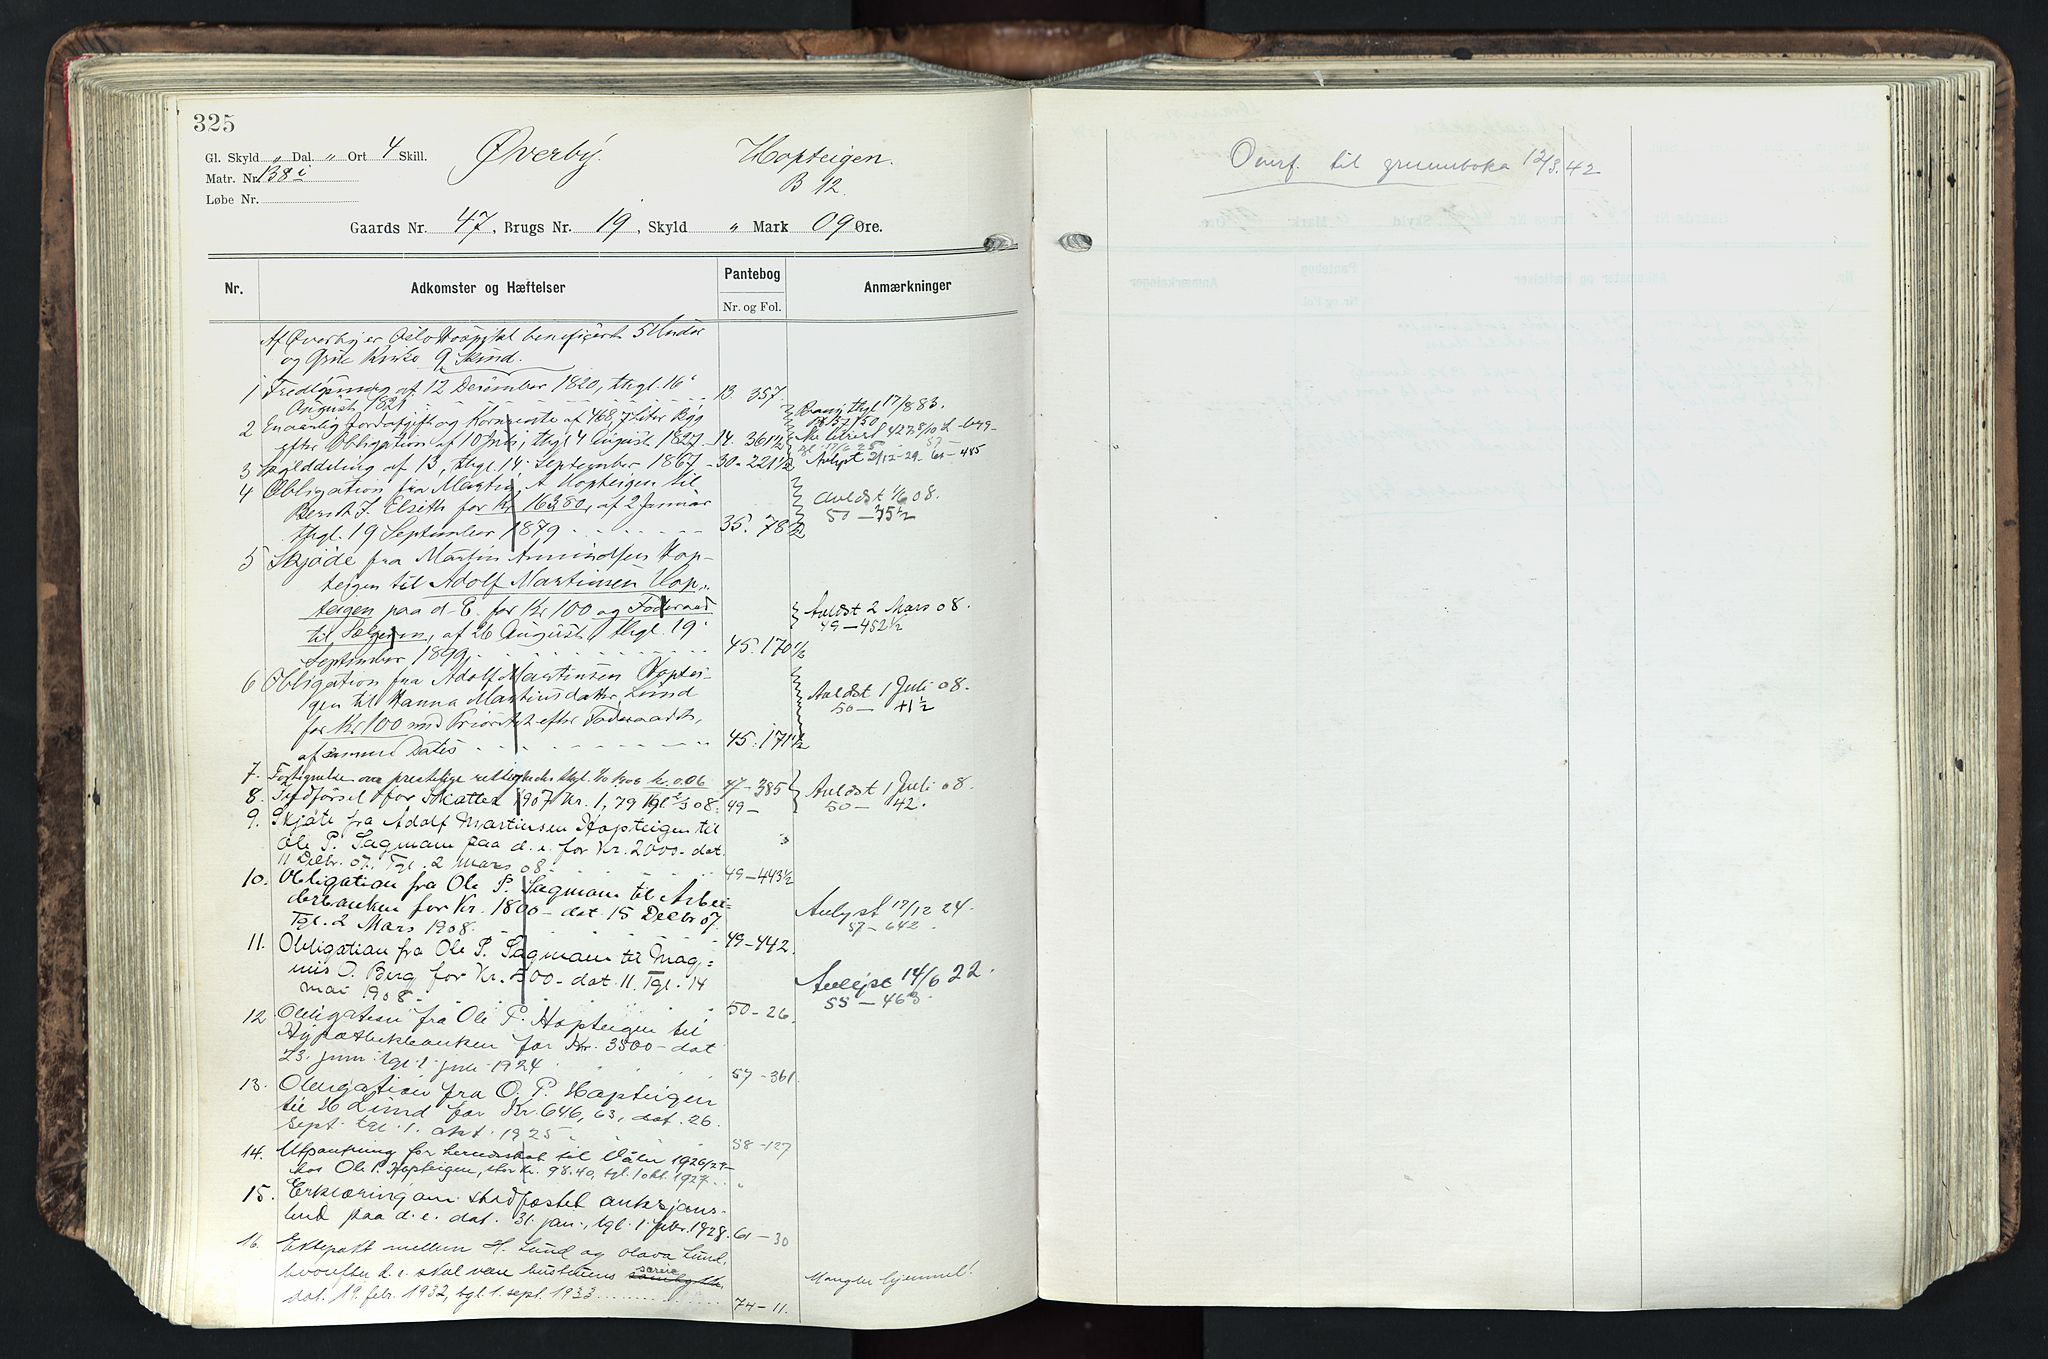 325
Gl. Skyld " Dal. " Ort 4 Skill. Øverby. Hopteigen.
Matr. Nr. 138 i B 12.
Løbe Nr.
Gaards Nr. 47, Brugs Nr. 19, Skyld " Mark 09 Øre.
Nr. Adkomster og Hæftelser Pantebog Anmærkninger
Nr. og Fol.
Af Øverby er Oslo Hospital beneficeret 5 Huder
og Grue Kirke 9 Skind.
1 af 12 December 1820, thgl. 16 13. 357
August 1821
2 En aarlig Jordafgift og Kornrente af 468,7 Liter Byg thgl 17/8 83.
efter Obligation af 10 Juli, thgl 4 August 1827 - 14. 361½
3 Skylddeling af 13, thgl. 14 September 1867 - 30 - 221½ Avlyst
4 Obligation fra Martin A Hopteigen til
Bernt J. Elseth for Kr 163,80, af 2 Januar Avldst 08.
thgl. 19 September 1879 35. 78½ 50 - 75½
5 Skjøde fra Martin Amundsen Hop-
teigen til Adolf Martinsen Hop-
teigen paa d. E. for Kr 100 og Føderaad Avldst 2 Mars 08.
til Sælgeren, af 26 August, thgl. 19 49 - 452½
September 1899. 45. 170½
6 Obligation fra Adolf Martinsen Hoptei-
gen til Hanna Martinsdatter Lund Avldst 1 Juli 08.
for Kr 100 med Prioritet efter Føderaadet, 50 - 41½
af samme Datis 45. 171½
7. Fortegnelse over prestelige rettigheder thgl. kr. 0.06 47 - 385 Avldst 1 Juli 08.
8. Indførsel for Skatter 1907 Kr. 1,79 Tgl. 2/3 08. 49 - 50 - 42.
9. Skjøte fra Adolf Martinsen Hopteigen til
Ole P. Sagmoen paa d. e. for Kr. 2000 - dat.
11 Decbr. 07. Tgl. 2 mars 08. 49 - 443½
10. Obligation fra Ole P. Sagmoen til Arbei-
derbanken for Kr. 1800 - dat 15 Decbr 07. Avlyst 17/12 24.
Tgl. 2 Mars 1908. 49 - 442. 57 - 642.
11. Obligation fra Ole P. Sagmoen til Mag-
nus O. Berg for Kr. 500 - dat. 11. Tgl. 14 Avlyst 14/6 22.
mai 1908. 50 - 26. 55 - 463.
12 Obligation fra Ole P. Hopteigen til
Hypothekbanken for Kr. 3500 - dat
23. juni tgl. 1. juli 1924 57 - 361.
13. Obligation fra O. P. Hopteigen
til H Lund for Kr. 646,63, dat. 26.
sept. tgl. 1. okt. 1925. 58 - 127
14. Utpantning for herredskat til Våler 1926/27
hos Ole P. Hopteigen, stor kr. 98.40, tgl. 1 okt. 1927. "
15. Erklæring om stadfæstet auksjons-
bud paa d. e. dat. 31. jan., tgl. 1. febr. 1928. 61 - 30
16. Ektepakt mellem H. Lund og Olava Lund,
hvorefter d. e. skal være hustruens særeie Mangler hjemmel!
dat. 19. febr. 1932, tgl. 1. sept. 1933 74 - 11.
Overf. til grunnboka 12/3. 42